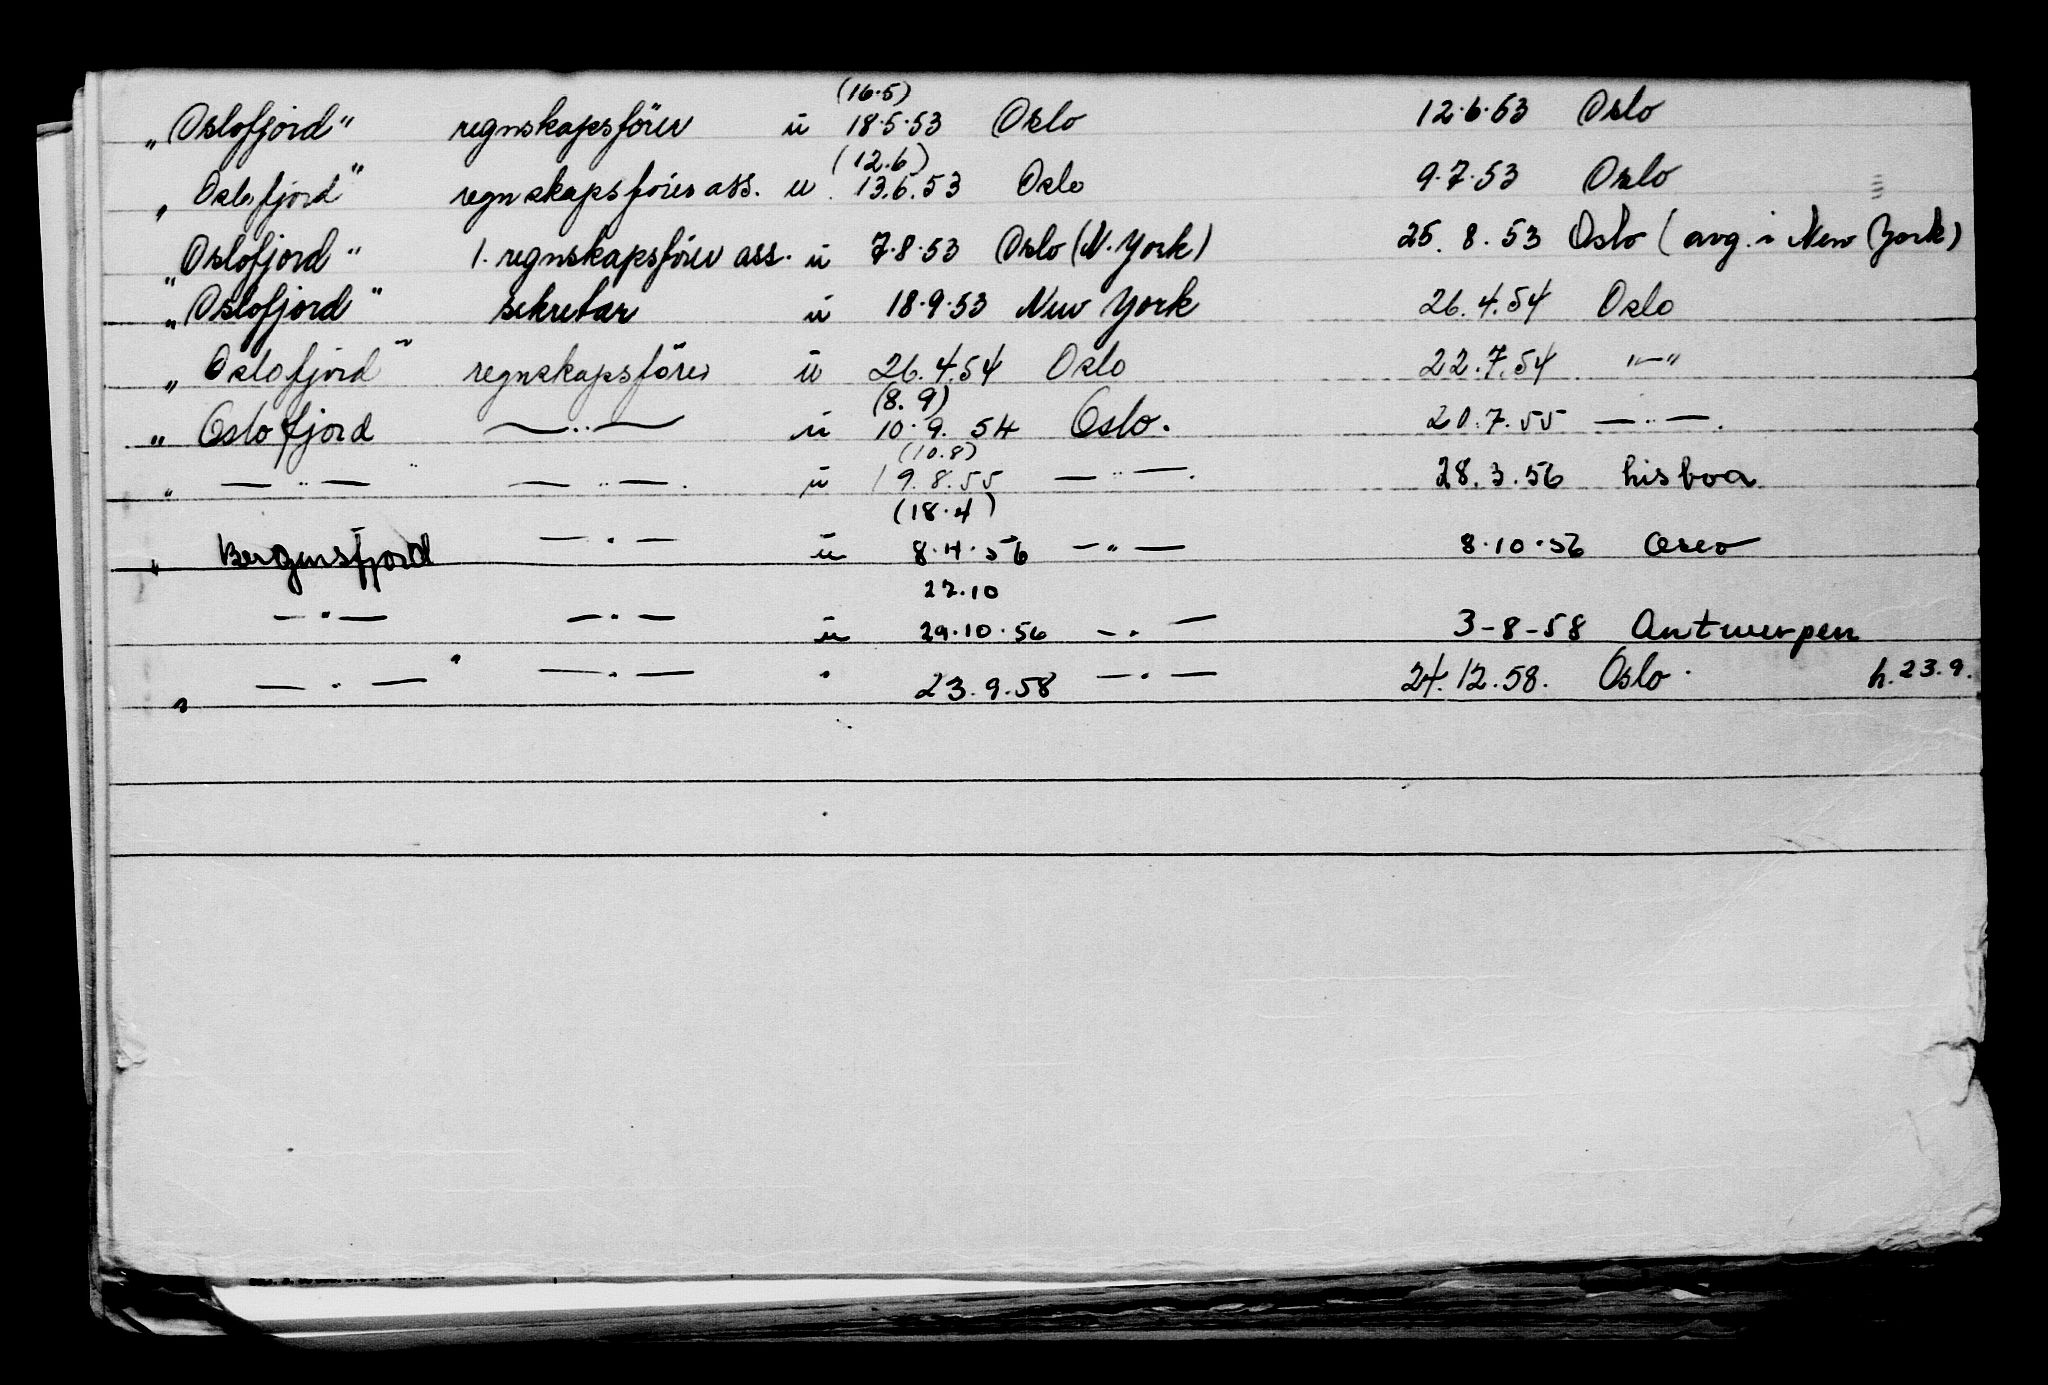 (16.5)
„ Oslofjord" regnskapsförer u 18.5.53 Oslo 12.6.53 Oslo
(12.6)
„ Oslofjord" regnskapsförer ass. u 13.6.53 Oslo 9.7.53 Oslo
„ Oslofjord" 1. regnskapsförer ass. u 7.8.53 Oslo (N. York) 25.8.53 Oslo (avg. i New York)
„ Oslofjord" sekretær u 18.9.53 New York 26.4.54 Oslo
„ Oslofjord" regnskapsförer u 26.4.54 Oslo 22.7.54 —"—
(8.9)
„ Oslofjord —"— u 10.9.54 Oslo. 20.7.55 —"—.
(10.8)
„ —"— —"—. u 19.8.55 —"—. 28.3.56 Lisboa
(18.4)
„ Bergensfjord —"— u 8.4.56 —"— 8.10.56 Oslo
27.10
—"— —"— u 29.10.56 —"— 3-8-58 Antwerpen
„ —"— " —"— " 23.9.58 —"— 24.12.58. Oslo. h. 23.9.